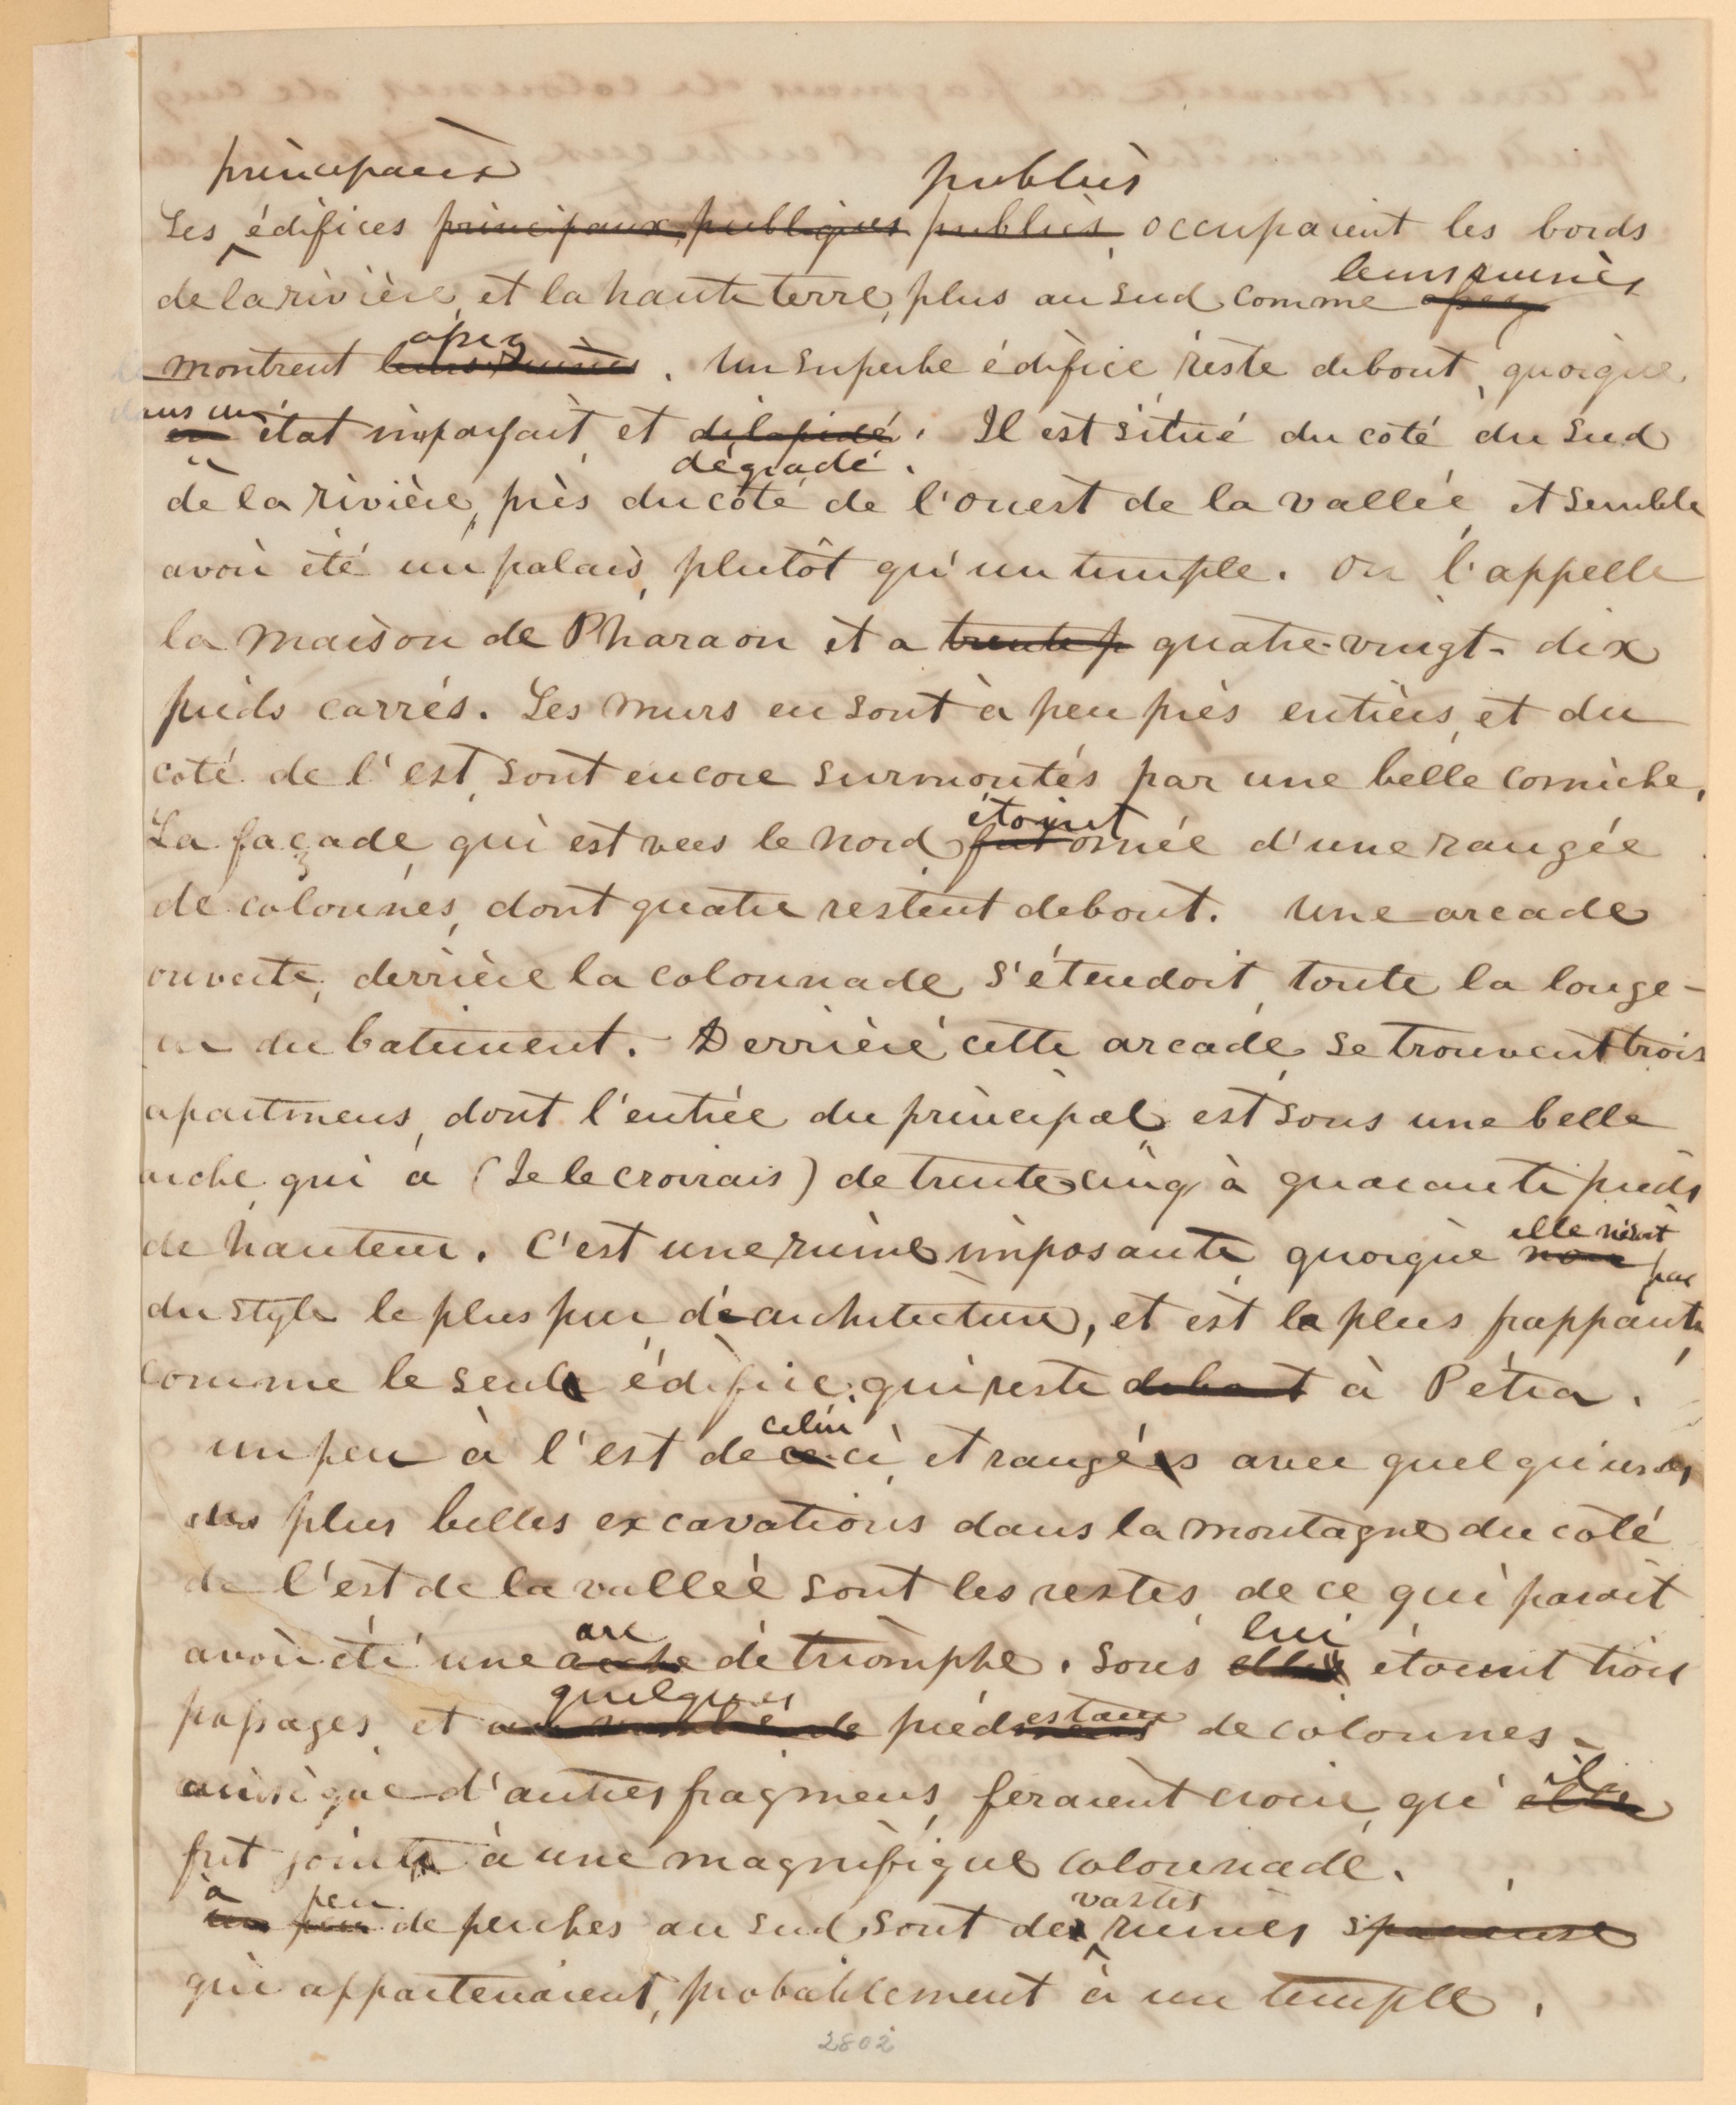 principaux publics
Les édifices principaux publiques publics occupaient les bords
leurs ruines
de la rivière, et la haute terre, plus au sud, comme
assez
montrent leurs ruines. Un superbe édifice reste debout, quoique
dans un
en état imparfait, et dilapidé. Il est situé du coté du sud
dégradé.
de la rivière, près du coté de l'ouest de la vallée, et semble
avoir été un palais, plutôt qu'un temple. On l'appelle
la maison de Pharaon et a trente p quatre-vingt-dix
pieds carrés. Les murs en sont à peu près entiers, et du
coté de l'est, sont encore surmontés par une belle corniche.
étoient
La façade qui est vers le nord fut ornée d'une rangée
de colonnes, dont quatre restent debout. Une arcade
ouverte, derrière la colonnade, s'étendoit, toute la longe-
ur du batiment. Derrière cette arcade, se trouvent trois
apartmens, dont l'entrée du principal, est sous une belle
arche qui a (Je le croirais) de trente cinq à quarante pieds
elle n'est
de hauteur. C'est une ruine imposante, quoique non pas
du style le plus pur d'architecture, et est la plus frappante,
comme le seule édifice qui reste debout à Pétra.
celui
un peu à l'est de ce-ci, et rangées avec quelqu'unes
des plus belles excavations dans la montagne du coté
de l'est de la vallée sont les restes, de ce qui paroit
arc lui
avoir été une arche de triomphe. Sous elle étoient trois
quelques
passages, et piédestaux de colonnes
il
ainsi que d'autres fragmens, feraient croire, qu' elle
fut jointe à une magnifique colonnade.
à peu vastes
un peu de perches au sud, sont des ruines spacieuse
qui appartenaient, probablement à un temple.
2802